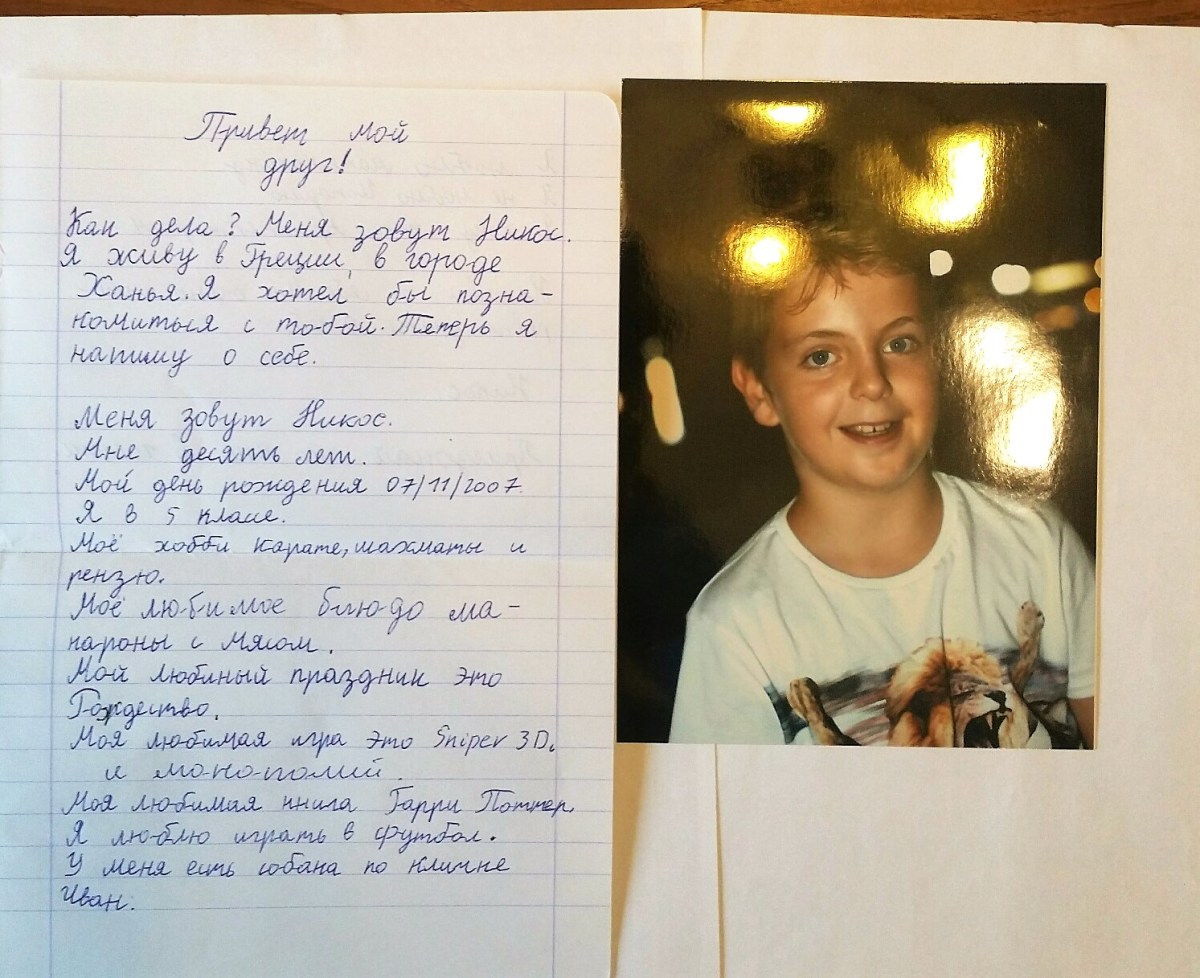 Привет мой
друг!
Как дела? Меня зовут Никос.
Я живу в Греции, в городе
Ханья. Я хотел бы позна-
комиться с то-бой. Теперь я
напишу о себе.
Меня зовут Никос.
Мне десять лет.
Мой день рождения 07/11/2007.
Я в 5 класе.
Моё хобби карате, шахматы и
рензю.
Моё лю-би-мое блю-до ма-
ка-роны с мясом.
Мой любиный праздник это
Рождество.
Моя лю-бимая игра это Sniper 3D.
и мо-но-полий.
Моя любимая книга Гарри Поттер.
Я лю-блю играть в футбол.
У меня есть собака по кличке
Иван.